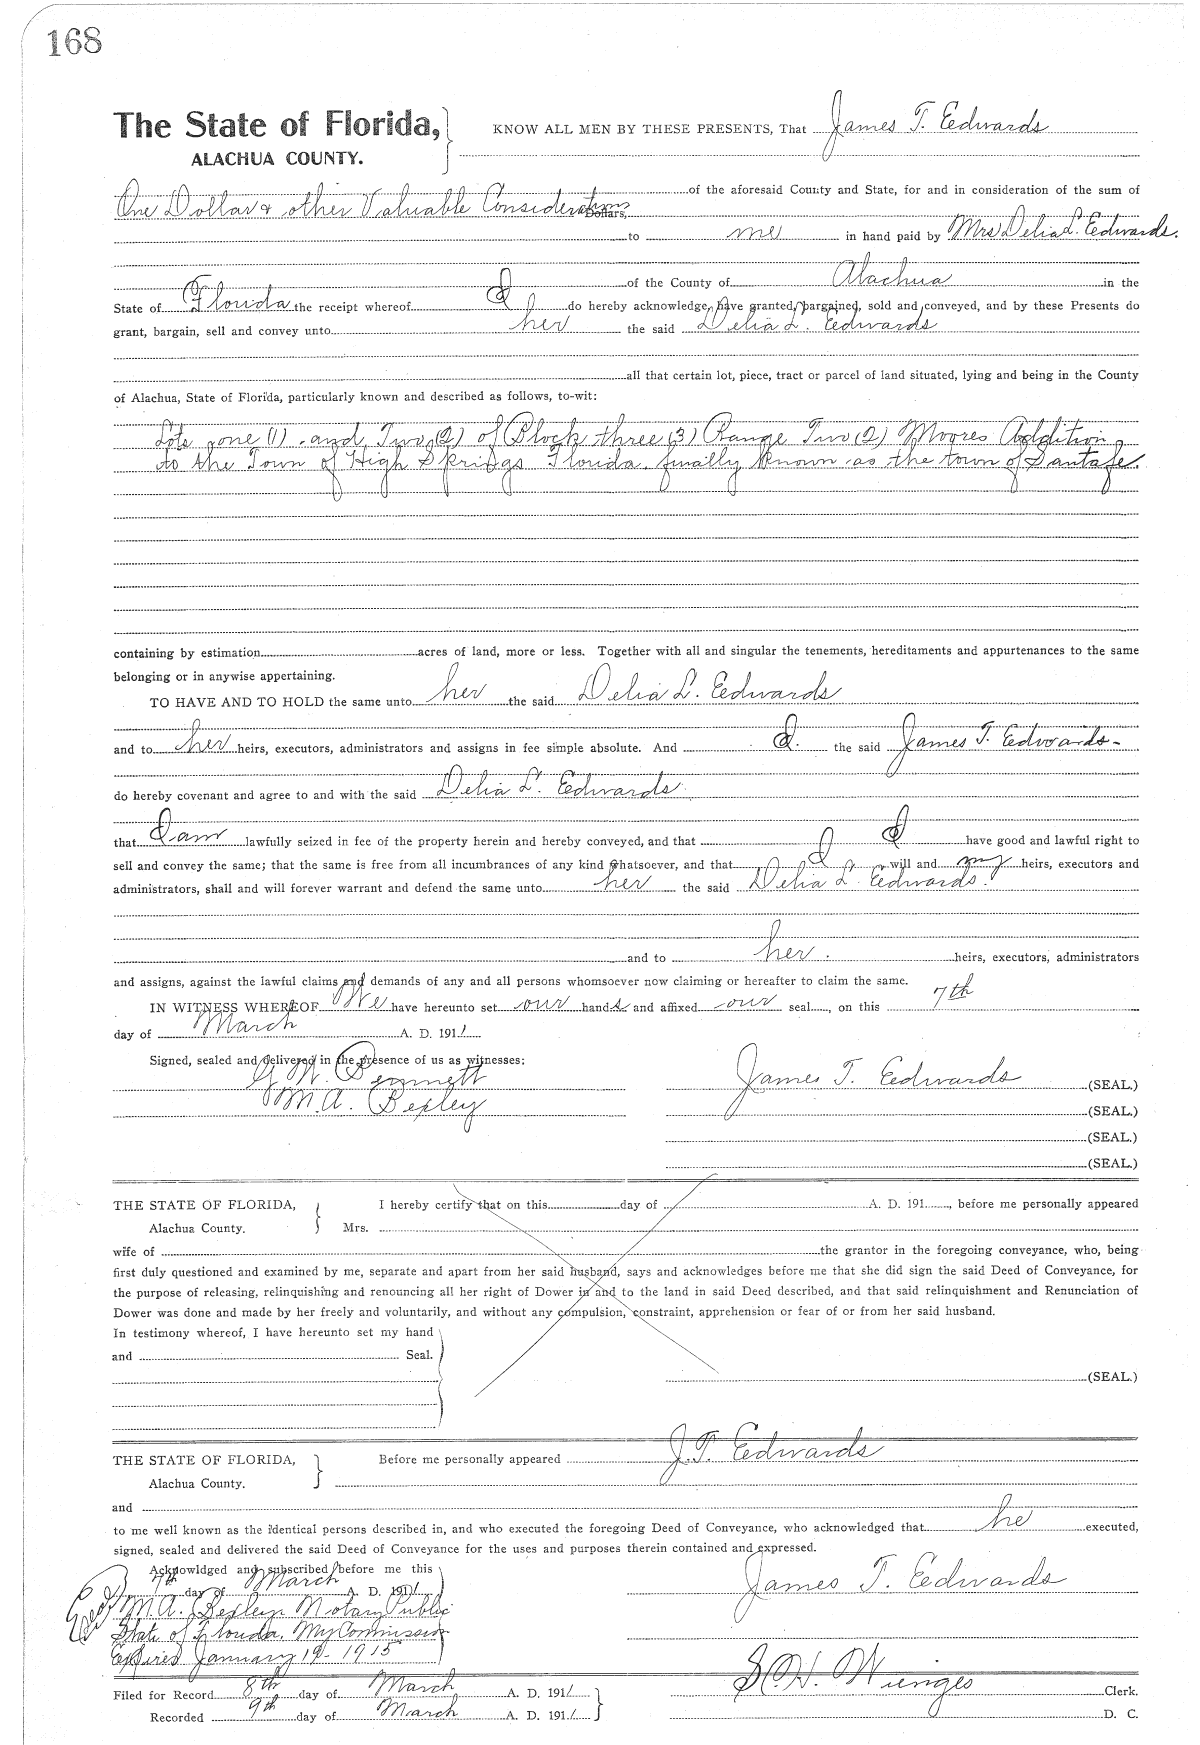 168
The State of Florida, KNOW ALL MEN BY THESE PRESENTS, That James T. Edwards
ALACHUA COUNTY.
of the aforesaid County and State, for and in consideration of the sum of
One Dollar & other Valuable Considerations Dollars,
to me in hand paid by Mrs Delia L. Edwards.
of the County of Alachua in the
State of Florida the receipt whereof I do hereby acknowledge, have granted, bargained, sold and conveyed, and by these Presents do
grant, bargain, sell and convey unto her the said Delia L. Edwards
all that certain lot, piece, tract or parcel of land situated, lying and being in the County
of Alachua, State of Florida, particularly known and described as follows, to-wit:
Lots one (1) and Two (2) of Block three (3) Range Two (2) Moores Addition
to the Town of High Springs Florida. finally known as the town of Santafe.
containing by estimation acres of land, more or less. Together with all and singular the tenements, hereditaments and appurtenances to the same
belonging or in anywise appertaining.
TO HAVE AND TO HOLD the same unto her the said Delia L. Edwards
and to her heirs, executors, administrators and assigns in fee simple absolute. And I. the said James T. Edwards-
do hereby covenant and agree to and with the said Delia L. Edwards
that I am lawfully seized in fee of the property herein and hereby conveyed, and that I have good and lawful right to
sell and convey the same; that the same is free from all incumbrances of any kind whatsoever, and that I will and my heirs, executors and
administrators, shall and will forever warrant and defend the same unto her the said Delia L. Edwards.
and to her. heirs, executors, administrators
and assigns, against the lawful claims and demands of any and all persons whomsoever now claiming or hereafter to claim the same.
IN WITNESS WHEREOF We have hereunto set our hands and affixed our seal, on this 7th
day of March A. D. 1911
Signed, sealed and delivered in the presence of us as witnesses:
G. M. Bennett James T. Edwards (SEAL.)
M. A. Bexley (SEAL.)
(SEAL.)
(SEAL.)
THE STATE OF FLORIDA, I hereby certify that on this day of A. D. 191 , before me personally appeared
Alachua County. Mrs.
wife of the grantor in the foregoing conveyance, who, being
first duly questioned and examined by me, separate and apart from her said husband, says and acknowledges before me that she did sign the said Deed of Conveyance, for
the purpose of releasing, relinquishing and renouncing all her right of Dower in and to the land in said Deed described, and that said relinquishment and Renunciation of
Dower was done and made by her freely and voluntarily, and without any compulsion, constraint, apprehension or fear of or from her said husband.
In testimony whereof, I have hereunto set my hand
and Seal.
(SEAL.)
THE STATE OF FLORIDA, Before me personally appeared J. T. Edwards
Alachua County.
and
to me well known as the identical persons described in, and who executed the foregoing Deed of Conveyance, who acknowledged that he executed,
signed, sealed and delivered the said Deed of Conveyance for the uses and purposes therein contained and expressed.
Acknowldged and subscribed before me this
7th day of March A. D. 1911 James T. Edwards
M. A. Bexley Notary Public
State of Florida. My Commission
Expires January 19- 1915
Filed for Record 8th day of March A. D. 1911 S. H. Wienges Clerk.
Recorded 9th day of March A. D. 1911 D. C.